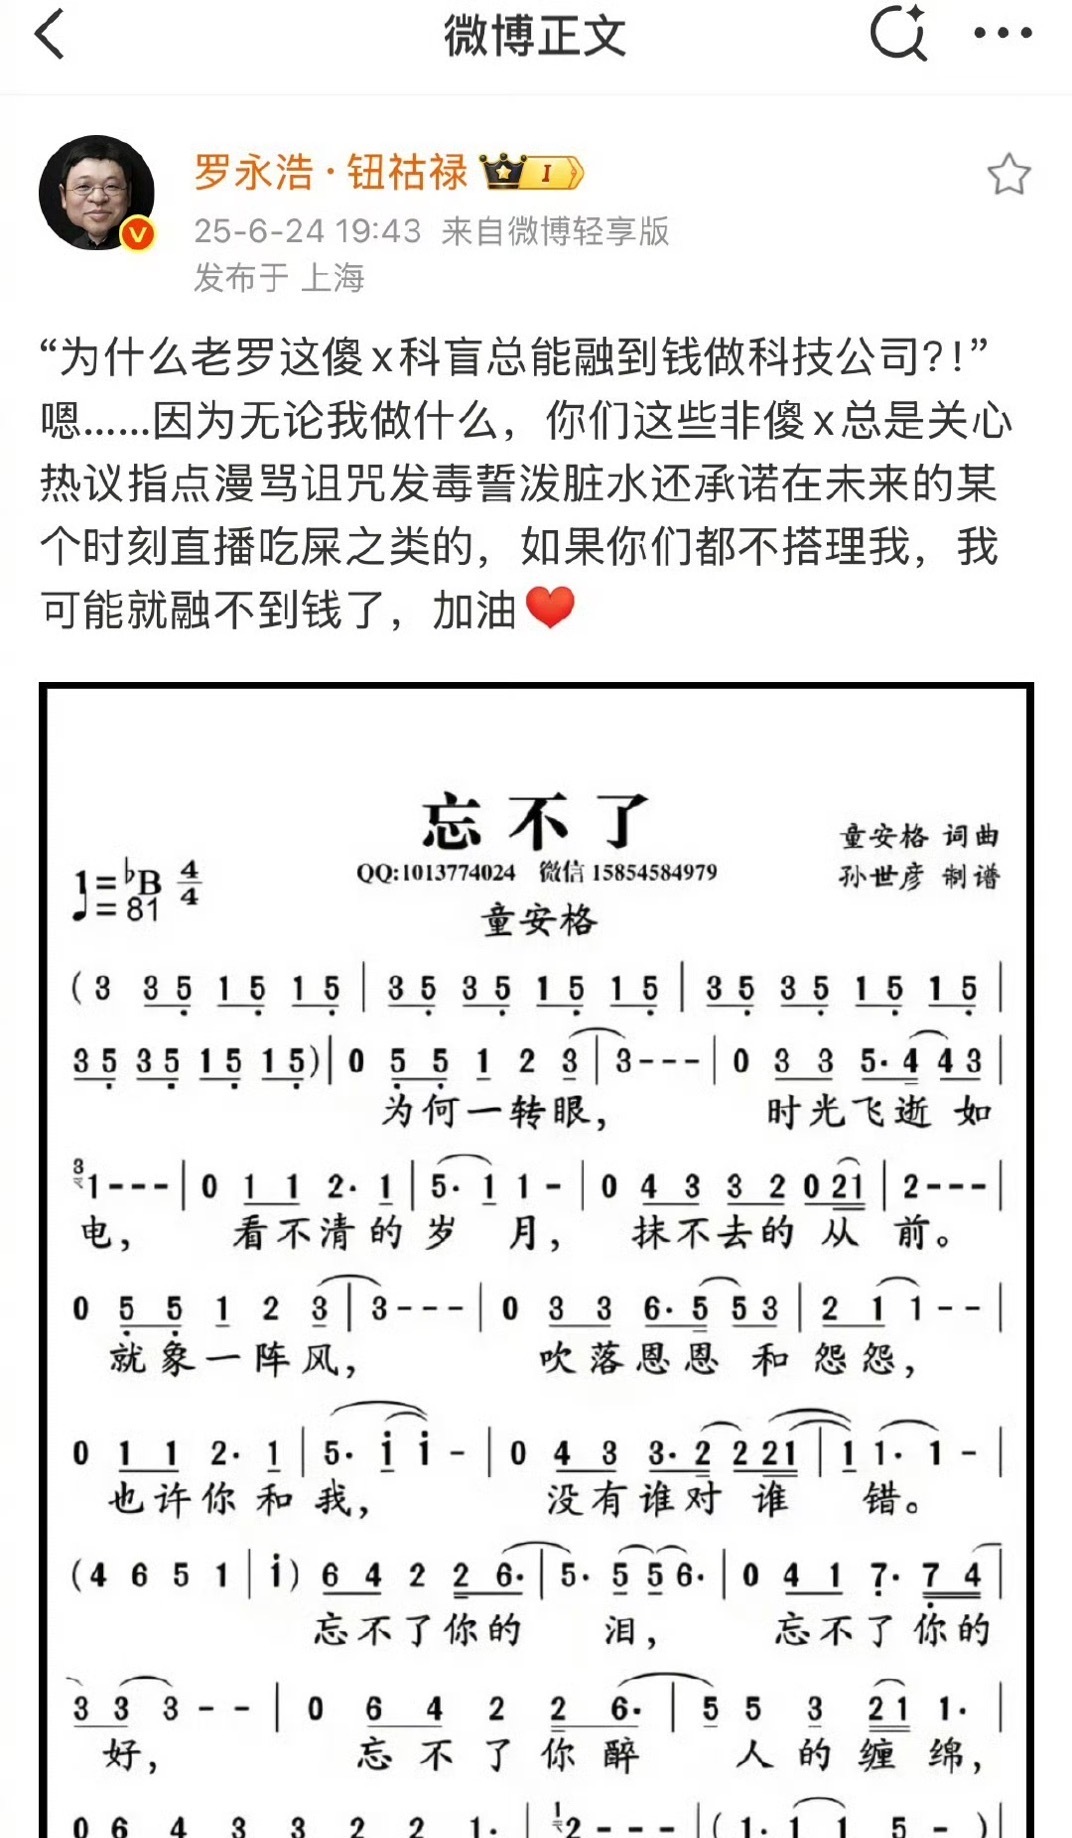 微博正文
罗永浩·钮祜禄 I
25-6-24 19:43 来自微博轻享版
发布于 上海
“为什么老罗这傻x科盲总能融到钱做科技公司?!”
嗯……因为无论我做什么，你们这些非傻x总是关心
热议指点漫骂诅咒发毒誓泼脏水还承诺在未来的某
个时刻直播吃屎之类的，如果你们都不搭理我，我
可能就融不到钱了，加油❤️
忘不了
童安格 词曲
QQ:1013774024 微信 15854584979
孙世彦 制谱
1=♭B 4/4
♩=81
童安格
(3 3 5 1 5 1 5 | 3 5 3 5 1 5 1 5 | 3 5 3 5 1 5 1 5 |
3 5 3 5 1 5 1 5)| 0 5 5 1 2 3 | 3 - - - | 0 3 3 5· 4 4 3 |
为何一转眼， 时光飞逝 如
3 1 - - - | 0 1 1 2· 1 | 5· 1 1 - | 0 4 3 3 2 0 2 1 | 2 - - - |
电， 看不清的 岁 月， 抹不去的 从 前。
0 5 5 1 2 3 | 3 - - - | 0 3 3 6· 5 5 3 | 2 1 1 - - |
就象一阵风， 吹落恩恩 和 怨怨，
0 1 1 2· 1 | 5· i i - | 0 4 3 3· 2 2 2 1 | 1 1· 1 - |
也许你 和 我， 没有谁对 谁 错。
(4 6 5 1 | i) 6 4 2 2 6· | 5· 5 5 6· | 0 4 1 7· 7 4 |
忘不了你的 泪， 忘不了 你的
3 3 3 - - | 0 6 4 2 2 6· | 5 5 3 2 1 1· |
好， 忘 不 了 你 醉 人 的 缠 绵，
0 6 4 3 3 2 2 1· | 1 2 - - - | (1· 1 1 5 - )|